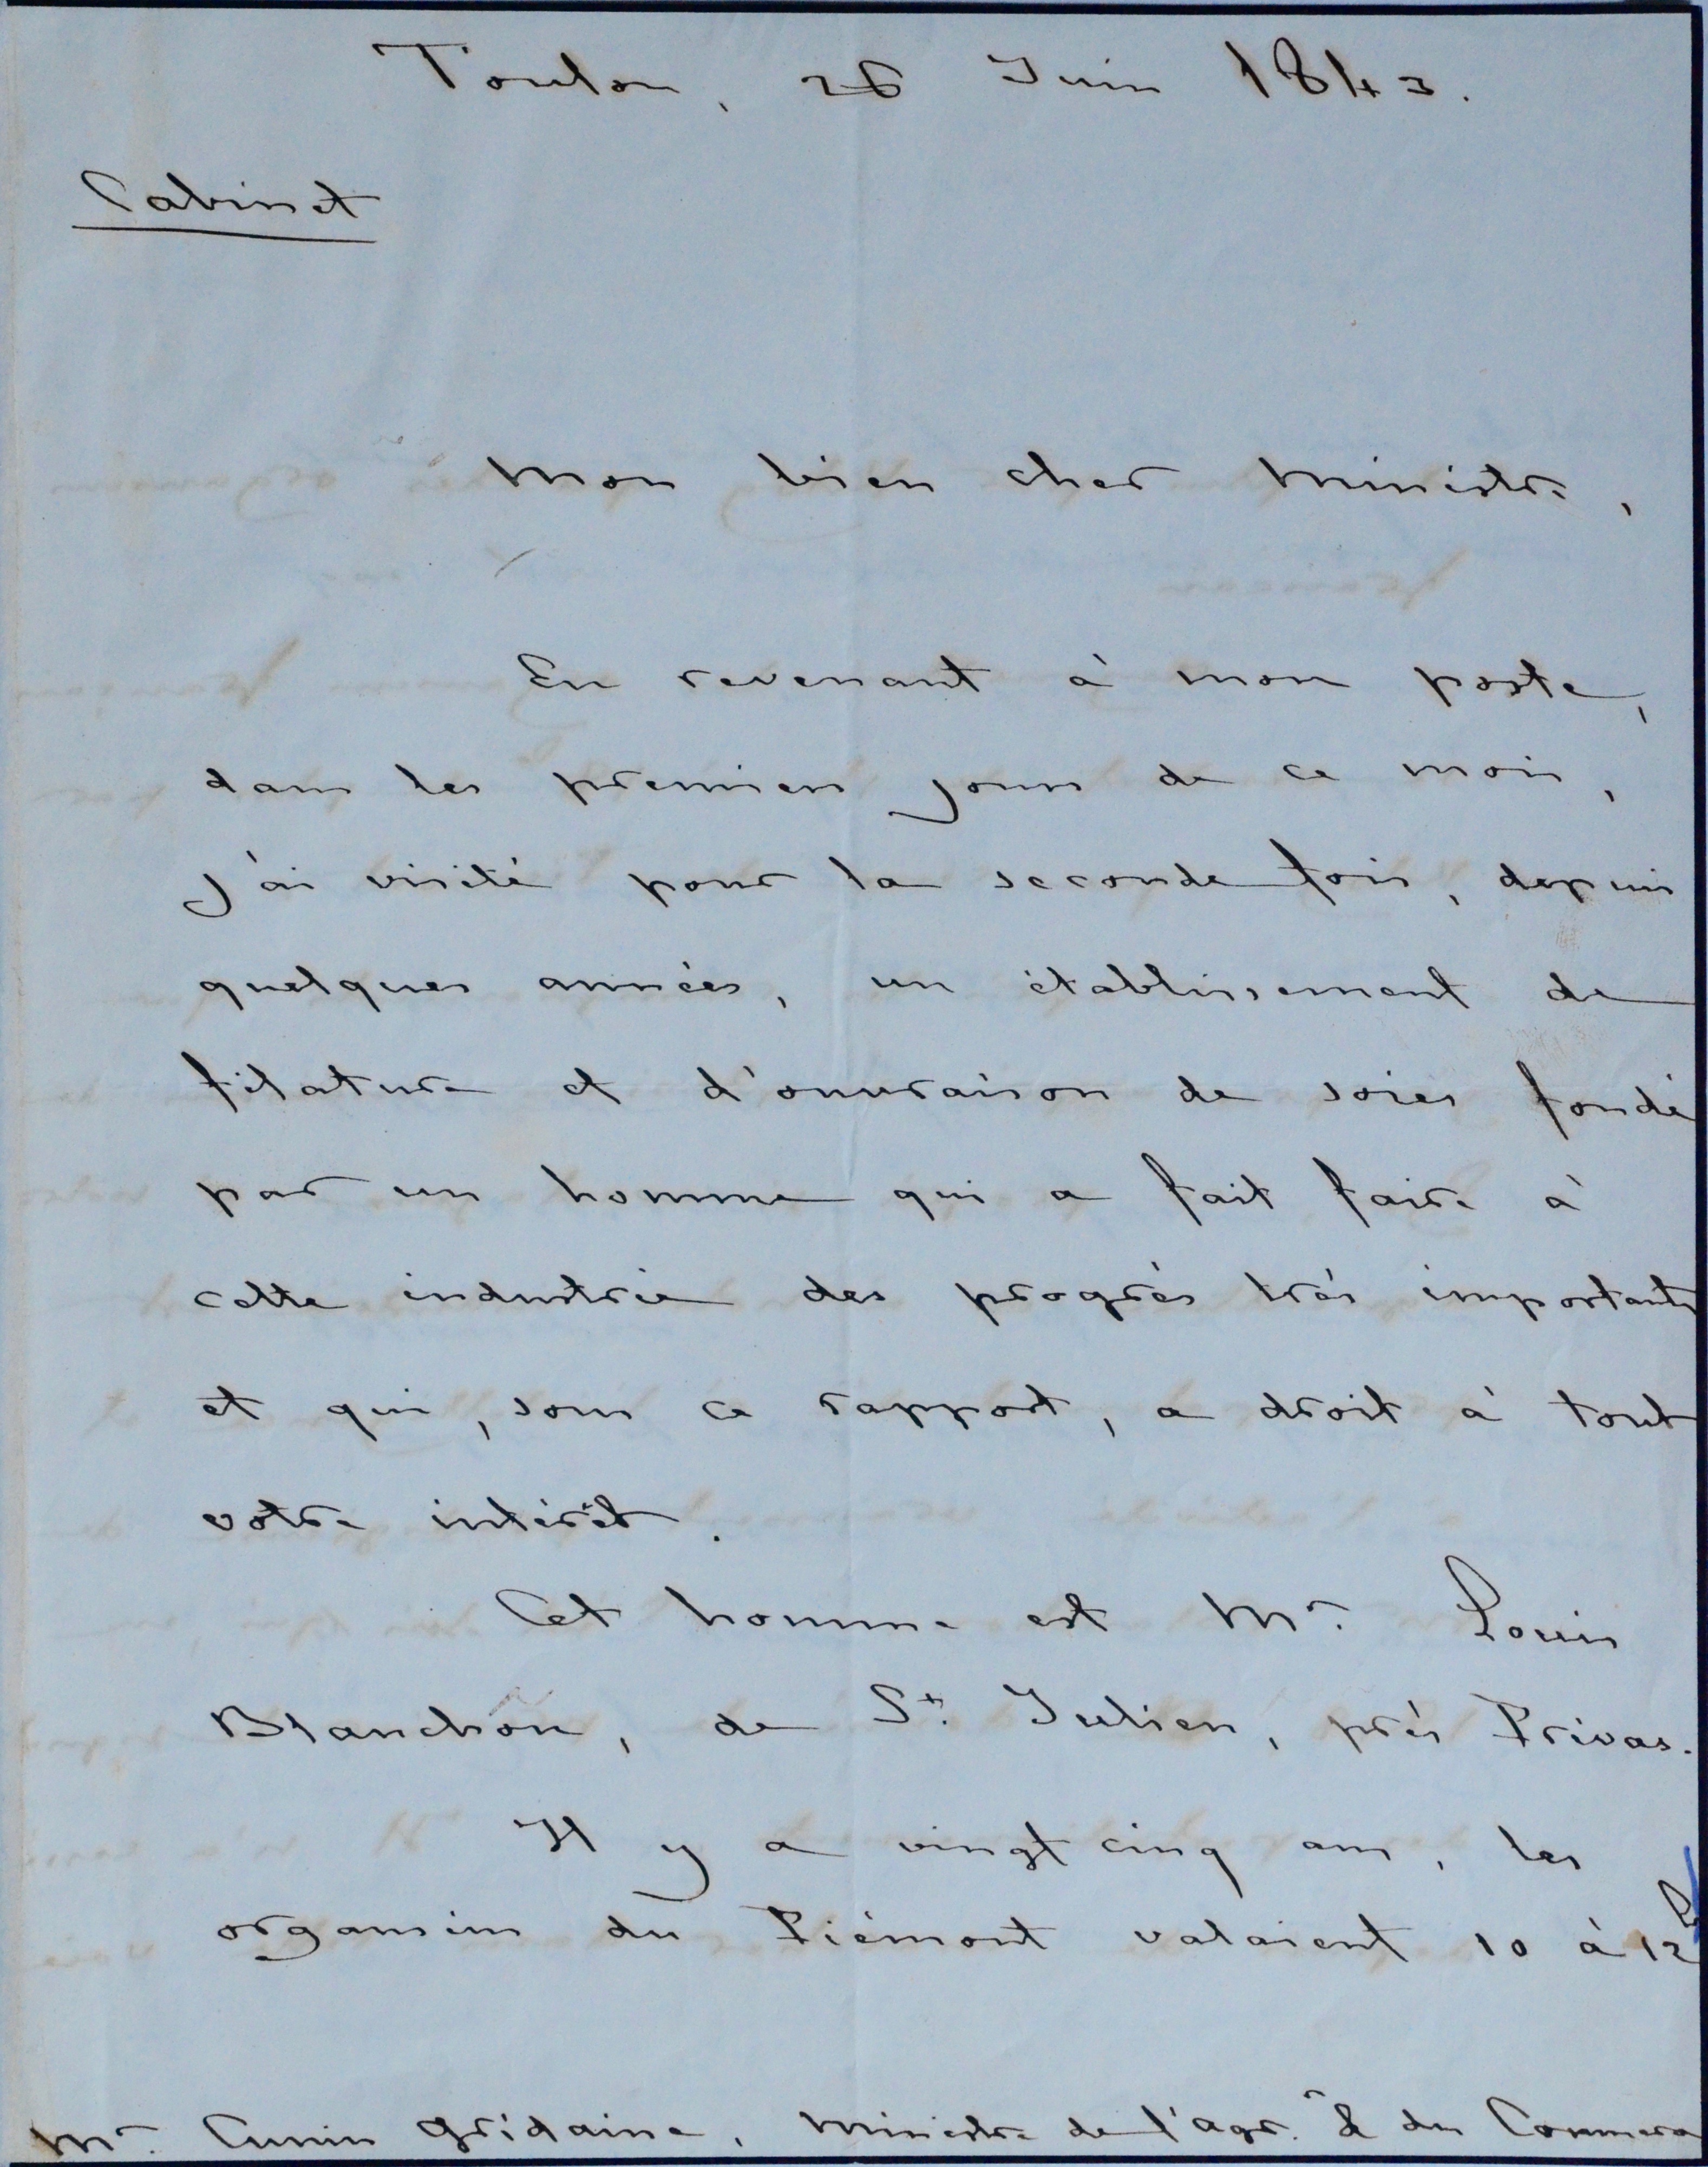 Toulon, 26 Juin 1843.
Cabinet
Mon bien cher Ministre,
En revenant à mon poste,
dans les premiers jours de ce mois,
j'ai visité pour la seconde fois, depuis
quelques années, un établissement de
filature et d'ouvraison de soies fondé
par un homme qui a fait faire à
cette industrie des progrès très importants
et qui, sous ce rapport, a droit à tout
votre intérêt.
Cet homme est Mr. Louis
Blanchon, de St. Julien, près Privas.
Il y a vingt cinq ans, les
organsins du Piémont valaient 10 à 12
Mr. Cunin Gridaine, Ministre de l'agr. & du Commerce